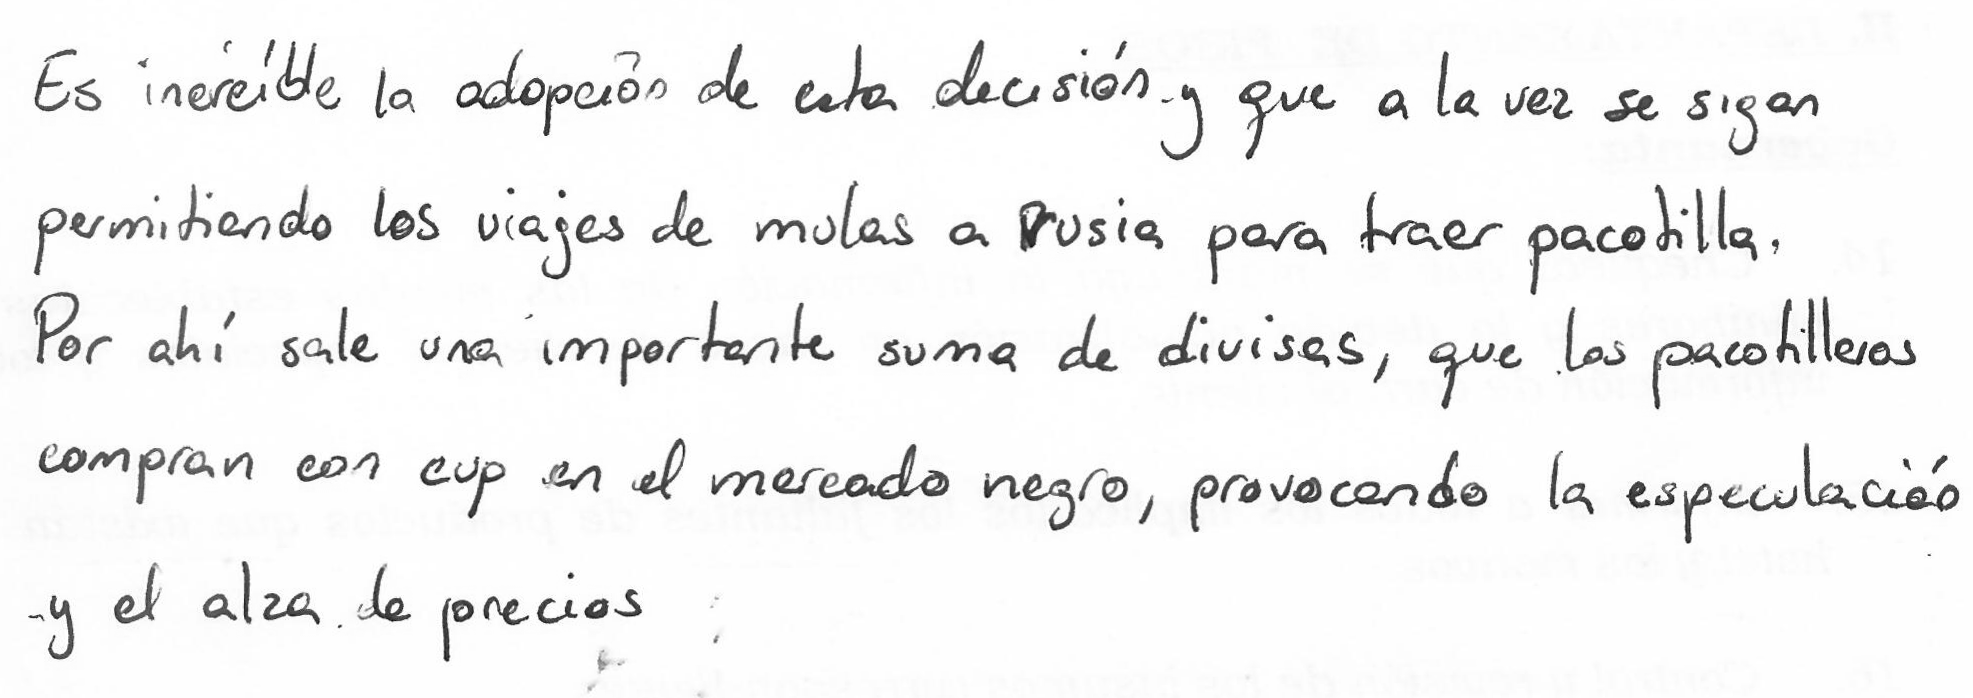 Es increíble la adopción de esta decisión y que a la vez se sigan
permitiendo los viajes de mulas a Rusia para traer pacotilla.
Por ahí sale una importante suma de divisas, que los pacotilleros
compran con cup en el mercado negro, provocando la especulación
y el alza de precios